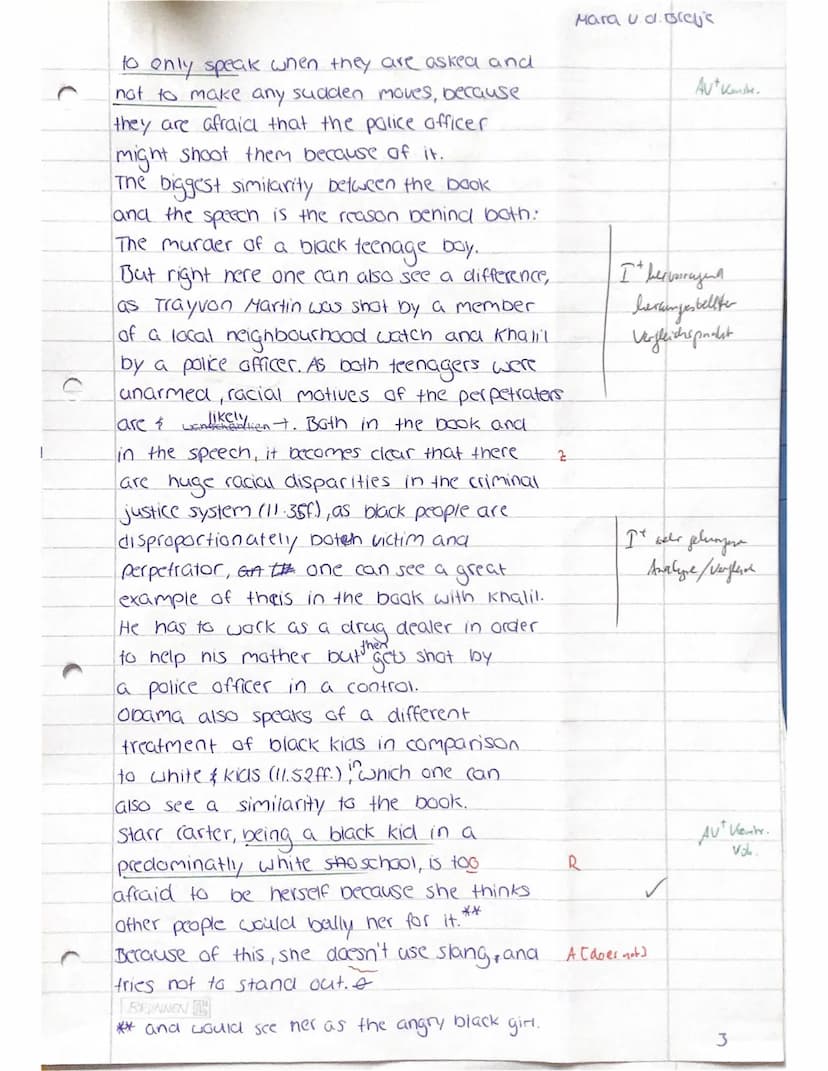 Mara v.d.
to only speak when they are asked and
AV+
not to make any sudden moves, because
they are afraid that the police officer
might shoot them because of it.
The biggest similarity between the book
and the speech is the reason behind both:
The murder of a black teenage boy.
But right here one can also see a difference,
I+ hervorragend
as Trayvon Martin was shot by a member
herausgestellter
of a local neighbourhood watch and Khalil
Vergleichspunkt
by a police officer. As both teenagers were
unarmed, racial motives of the perpetraters
are likely. Both in the book and
in the speech, it becomes clear that there
z
are huge racial disparities in the criminal
justice system (ll.35f), as black people are
disproportionately both victim and
I+ sehr gelungene
perpetrator, one can see a great
Analyse/Vergleich
example of this in the book with Khalil.
He has to work as a drug dealer in order
to help his mother but then gets shot by
a police officer in a control.
Obama also speaks of a different
treatment of black kids in comparison
to white kids (ll.52ff.), in which one can
also see a similarity to the book.
Starr Carter, being a black kid in a
AV+
predominatly white school, is too
R
afraid to be herself because she thinks
✓
other people would bully her for it.**
Because of this, she doesn't use slang, and
A [does not]
tries not to stand out.
BRUNNEN
** and would see her as the angry black girl.
3